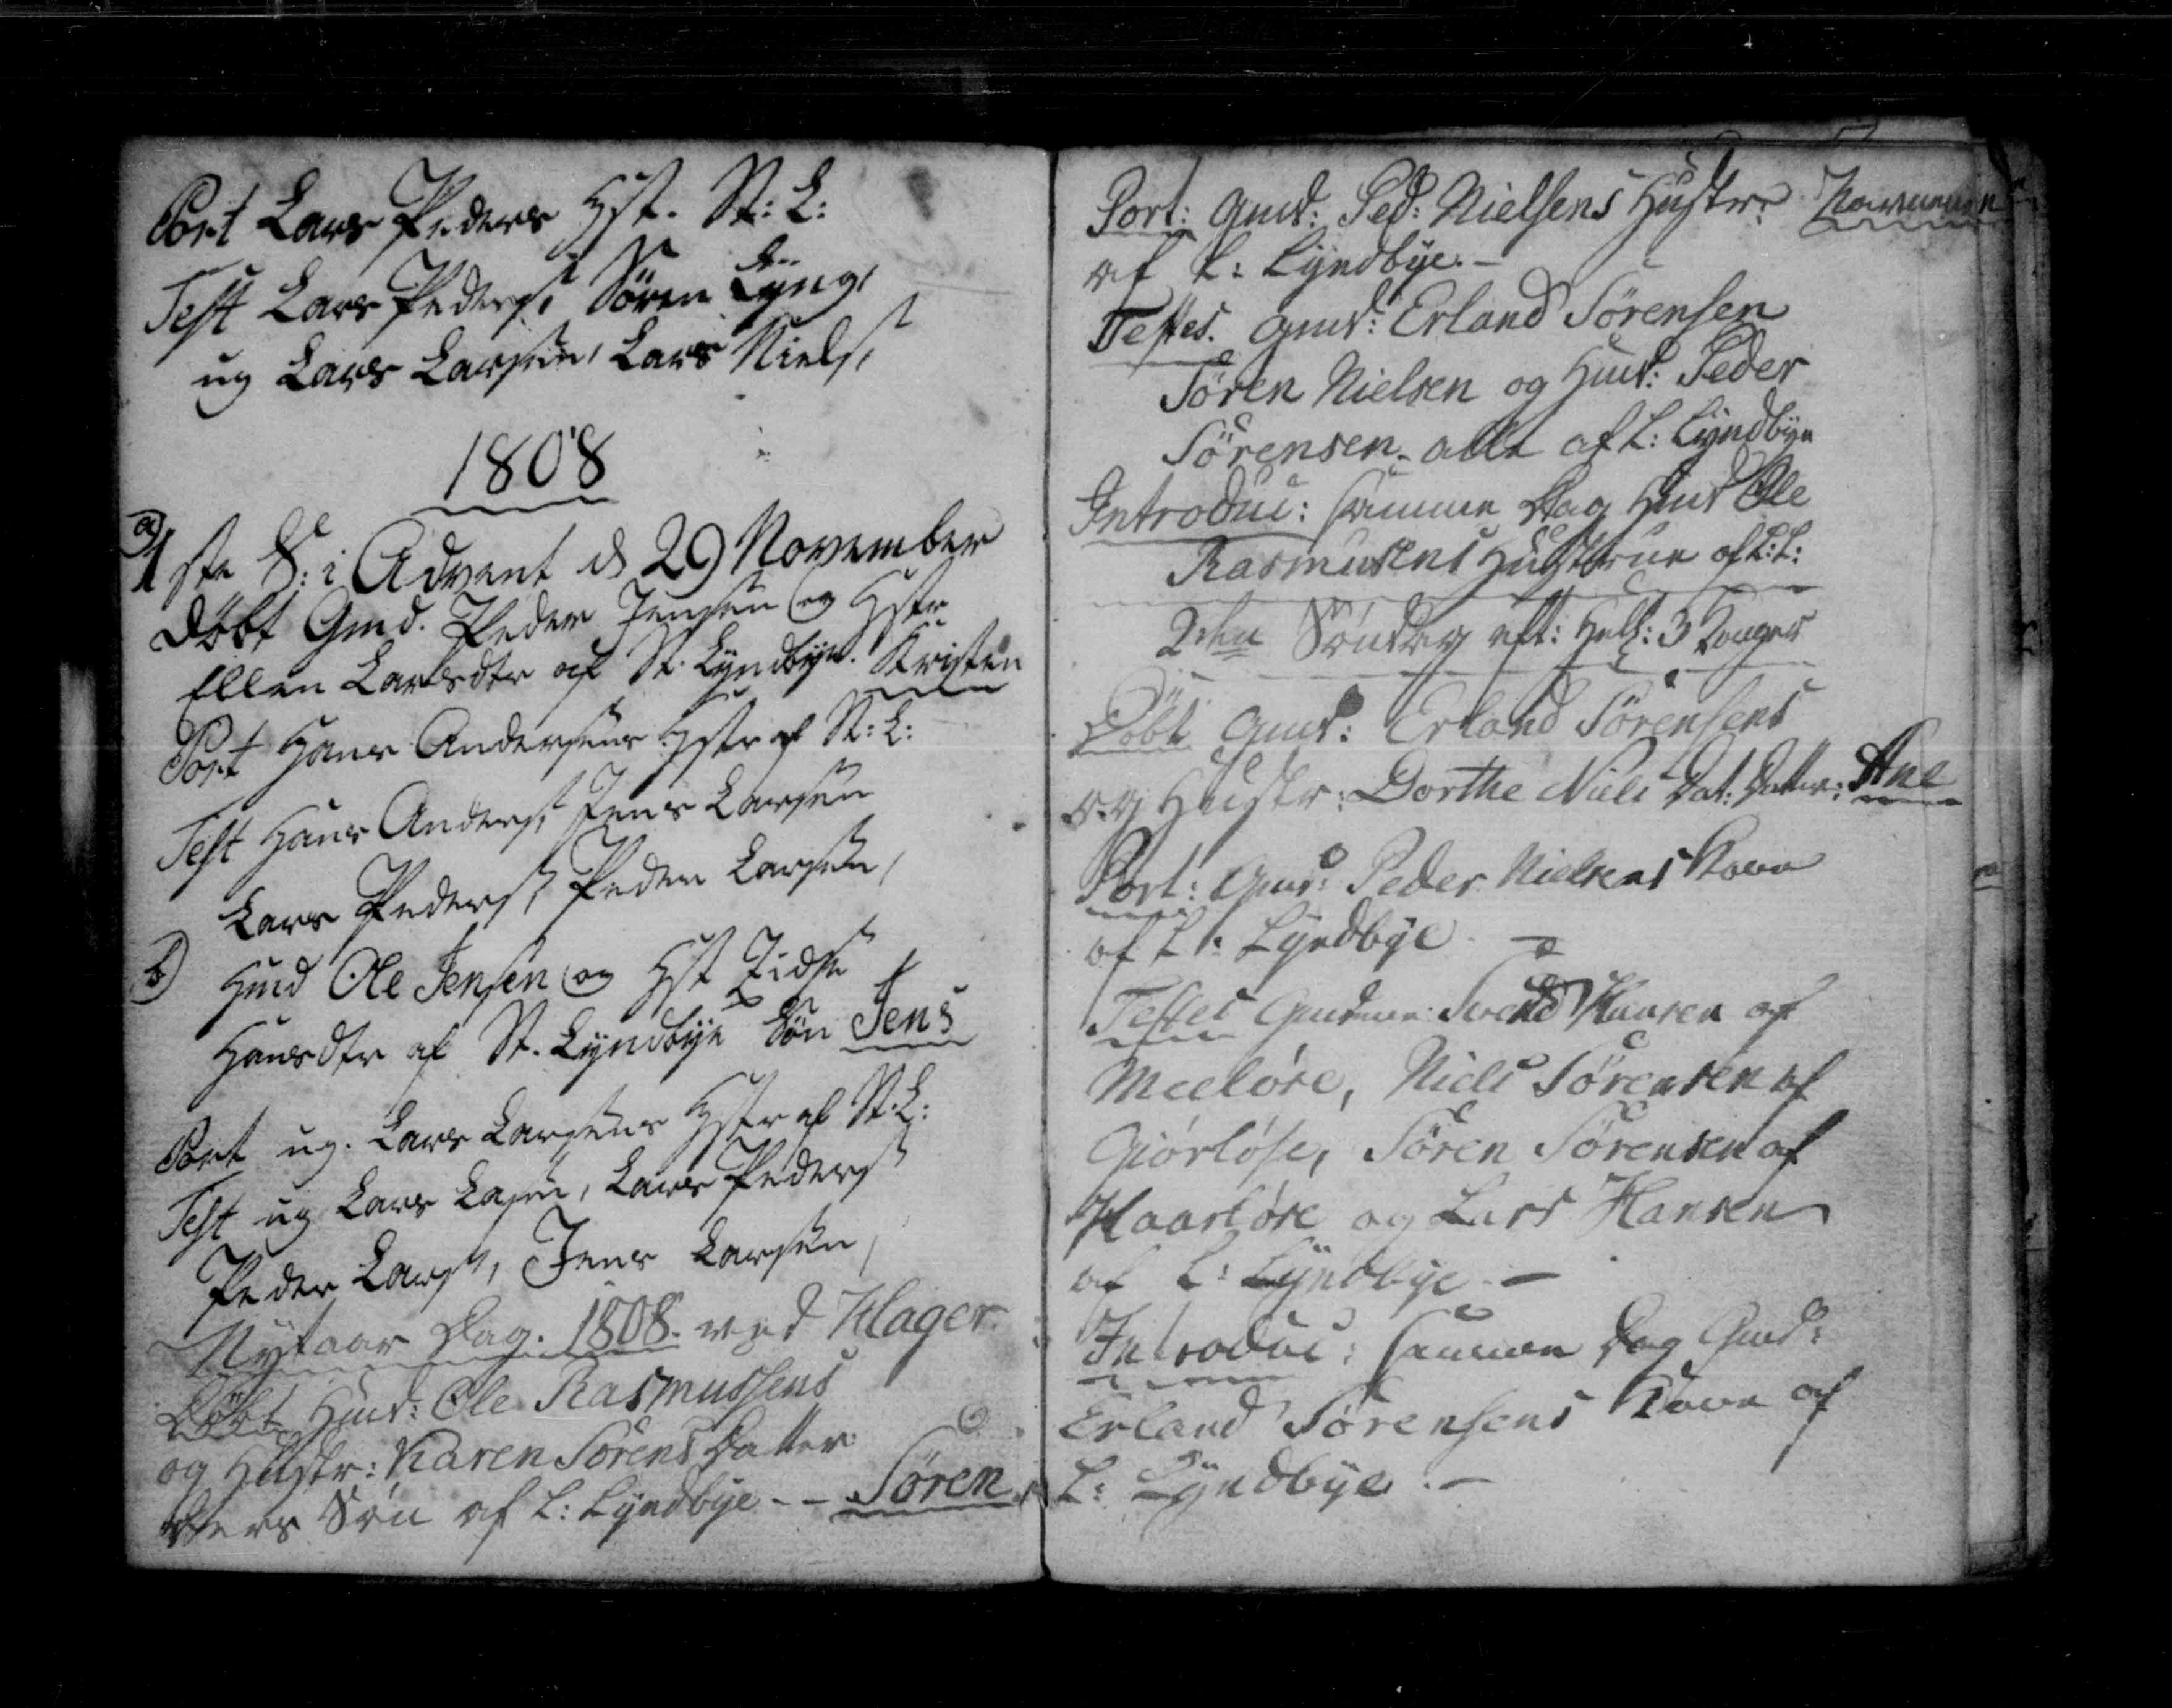 Port Lars Peders Hst. St: L:
Test Lars Peders, Sören Lyng,
ug Lars Larsen, Lars Niels,
1808
a)
1ste S: i Advent d 29 November
Döbt Gmd. Peder Jensen og Hstr
Ellen Larsdtr af St. Lyndbye. Kristen
Port Hans Andersens Hstr af St: L:
Test Hans Anders, Jens Larsen
Lars Peders, Peder Larsen,
b) Hmd Ole Jensen og Hst Zidse
Hansdtr af St. Lyndbye Sön Jens
Port ug. Lars Larsens Hstr af St. L:
Test ug Lars Larsen, Lars Peders
Peder Lars, Jens Larsen,
Nytaar Dag. 1808. ved Hager.
Döbt Hmd: Ole Rasmussens
og Hustr: Karen Sörens Datter
deres Sön af L: Lyndbye - - Sören
Port: Gmd: Ped: Nielsens Hustr:
af L: Lyndbye. -
Testes. Gmd: Erland Sörensen
Sören Nielsen og Hmd: Peder
Sörensen - alle af L: Lyndbye
Introduc: samme Dag Hmd Ole
Rasmusens Hustrue af L: L:
2den Söndag eft: Hell: 3 Konger
Döbt Gmd: Erland Sörensens
og Hustr: Dorthe Niels Dat: Datter: Ane
Port: Gmd: Peder Nielsens Kone
af L: Lyndbye -
Testes Gmdmen: Svend Hansen af
Meelöse, Niels Sörensen af
Giörlöse, Sören Sörensen af
Haarlöse og Lars Hansen
af L: Lyndbye. -
Introduc: samme Dag Gmd:
Erland Sörensens Kone af
L: Lyndbye. -